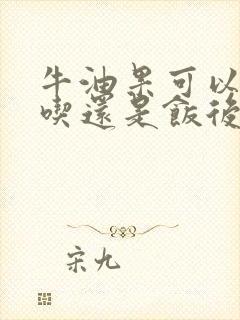 牛油果可以
喫還是飯後
宋九